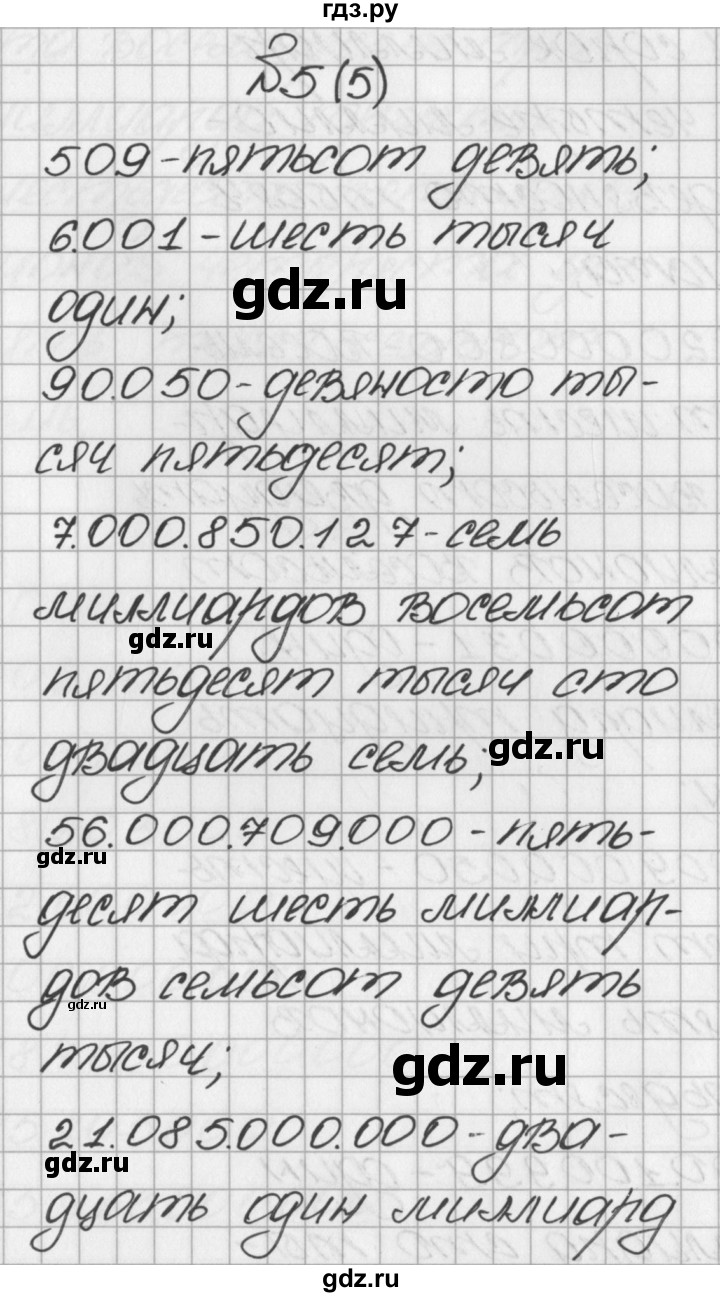 гдз.ру
№5 (5)
509-пятьсот девять;
6.001-шесть тысяч
gdz.ru
один;
90.050-девяносто ты-
сяч пятьдесят;
7.000.850.127-семь
миллиардов восемьсот
gdz.ru
пятьдесят тысяч сто
двадцать семь;
gdz.ru
56.000.709.000-пять-
gdz.ru
десят шесть миллиар-
дов семьсот девять
gdz.ru
тысяч;
gdz.ru
21.085.000.000-два-
gdz.ru
дцать один миллиард
gdz.ru